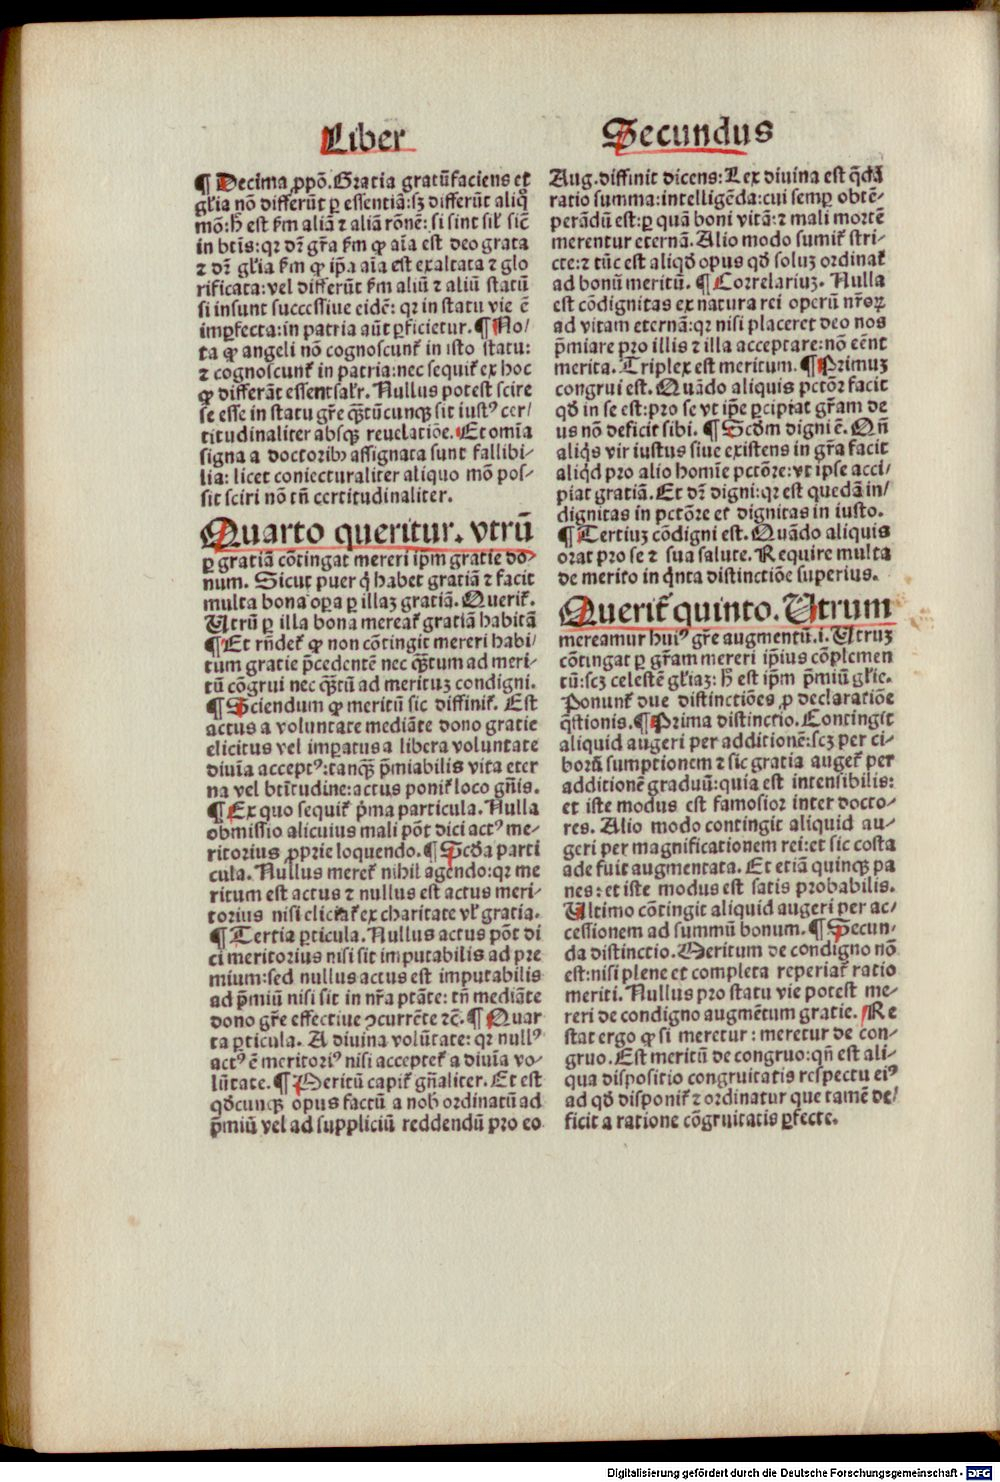 Liber Secundus
¶ Decima ꝓpō. Gratia gratū faciens et
gl'ia nō differūt ꝑ essentiā: sꝫ differūt aliq̊
mō: h̄ est ẜm aliā ⁊ aliā rōnē: si sint sil' sic̄
in btīs: qꝛ dr̄ gr̄a ẜm ꝙ aīa est deo grata
⁊ dr̄ gl'ia ẜm ꝙ ip̄a aīa est exaltata ⁊ glo
rificata: vel differūt ẜm aliū ⁊ aliū statū
si insunt successiue eidē: qꝛ in statu vie ē
imꝑfecta: in patria aūt ꝑficietur. ¶ No/
ta ꝙ angeli nō cognoscunt᷑ in isto statu:
⁊ cognoscunt᷑ in patria: nec sequit᷑ ex hoc
ꝙ differāt essentsal'r. Nullus potest scire
se esse in statu gr̄e qꝫtūcunqꝫ sit iustꝰ cer/
titudinaliter absqꝫ reuelatiōe. Et om̄ia
signa a doctoribꝰ assignata sunt fallibi-
lia: licet coniecturaliter aliquo mō pos-
sit sciri nō tn̄ certitudinaliter.
Quarto queritur. vtrū
ꝑ gratiā cōtingat mereri ip̄m gratie do-
num. Sicut puer q̇ habet gratiā ⁊ facit
multa bona oꝑa ꝑ illaꝫ gratiā. Querit᷑.
Utrū ꝑ illa bona mereat᷑ gratiā habitā
¶ Et rn̄det᷑ ꝙ non cōtingit mereri habi/
tum gratie p̄cedentē nec qꝫtum ad meri-
tū cōgrui nec qꝫtū ad merituꝫ condigni.
¶ Sciendum ꝙ meritū sic diffinit᷑. Est
actus a voluntate mediāte dono gratie
elicitus vel imꝑatus a libera voluntate
diuīa acceptꝰ: tanqꝫ p̄miabilis vita eter
na vel btītudine: actus ponit᷑ loco gn̄is.
¶ Ex quo sequit᷑ p̄ma particula. Nulla
obmissio alicuius mali pōt dici actꝰ me-
ritorius ꝓprie loquendo. ¶ Scd̄a parti
cula. Nullus meret᷑ nihil agendo: qꝛ me
ritum est actus ⁊ nullus est actus meri-
torius nisi eliciat᷑ ex charitate vl' gratia.
¶ Tertia ꝑticula. Nullus actus pōt di
ci meritorius nisi sit imputabilis ad pre
mium: sed nullus actus est imputabilis
ad p̄miū nisi sit in nr̄a ptāte: tn̄ mediāte
dono gr̄e effectiue ꝯcurrēte ⁊c̄. ¶ Quar
ta ꝑticula. A diuina volūtate: qꝛ nullꝰ
actꝰ ē meritoriꝰ nisi acceptet᷑ a diuīa vo-
lūtate. ¶ Meritū capit᷑ gn̄aliter. Et est
qd̄cunqꝫ opus factū a nob̄ ordinatū ad
p̄miū vel ad suppliciū reddendū pro eo
Aug. diffinit dicens: Lex diuina est q̄dā
ratio summa: intelligēda: cui semꝑ obtē-
perādū est: ꝑ quā boni vitā: ⁊ mali mortē
merentur eternā. Alio modo sumit᷑ stri-
cte: ⁊ tūc est aliqd̄ opus qd̄ soluꝫ ordinat᷑
ad bonū meritū. ¶ Correlariuꝫ. Nulla
est cōdignitas ex natura rei operū nr̄oꝝ
ad vitam eternā: qꝛ nisi placeret deo nos
p̄miare pro illis ⁊ illa acceptare: nō eēnt
merita. Triplex est meritum. ¶ Primuꝫ
congrui est. Quādo aliquis pctōr facit
qd̄ in se est: pro se vt ip̄e ꝑcipiat gr̄am de
us nō deficit sibi. ¶ Scd̄m digni ē. Qn̄
aliq̇s vir iustus siue existens in gr̄a facit
aliqd̄ pro alio homīe pctōre: vt ipse acci/
piat gratiā. Et dr̄ digni: qꝛ est quedā in/
dignitas in pctōre et dignitas in iusto.
¶ Tertiuꝫ cōdigni est. Quādo aliquis
orat pro se ⁊ sua salute. Require multa
de merito in q̇nta distinctiōe superius.
Querit᷑ quinto. Utrum
mereamur huiꝰ gr̄e augmentū .i. Utruꝫ
cōtingat ꝑ gr̄am mereri ip̄ius cōplemen
tū: scꝫ celestē gl'iaꝫ: h̄ est ip̄m p̄miū gl'ie.
Ponunt᷑ due distinctiōes ꝓ declaratiōe
q̄stionis. ¶ Prima distinctio. Contingit
aliquid augeri per additionē: scꝫ per ci-
borū sumptionem ⁊ sic gratia auget᷑ per
additionē graduū: quia est intensibilis:
et iste modus est famosior inter docto-
res. Alio modo contingit aliquid au-
geri per magnificationem rei: et sic costa
ade fuit augmentata. Et etiā quinqꝫ pa
nes: et iste modus est satis probabilis.
Ultimo cōtingit aliquid augeri per ac/
cessionem ad summū bonum. ¶ Secun-
da distinctio. Meritum de condigno nō
est: nisi plene et completa reperiat᷑ ratio
meriti. Nullus pro statu vie potest me-
reri de condigno augmētum gratie. Re
stat ergo ꝙ si meretur: meretur de con-
gruo. Est meritū de congruo: qn̄ est ali-
qua dispositio congruitatis respectu eiꝰ
ad qd̄ disponit᷑ ⁊ ordinatur que tamē de/
ficit a ratione cōgruitatis ꝑfecte.
Digitalisierung gefördert durch die Deutsche Forschungsgemeinschaft - DFG